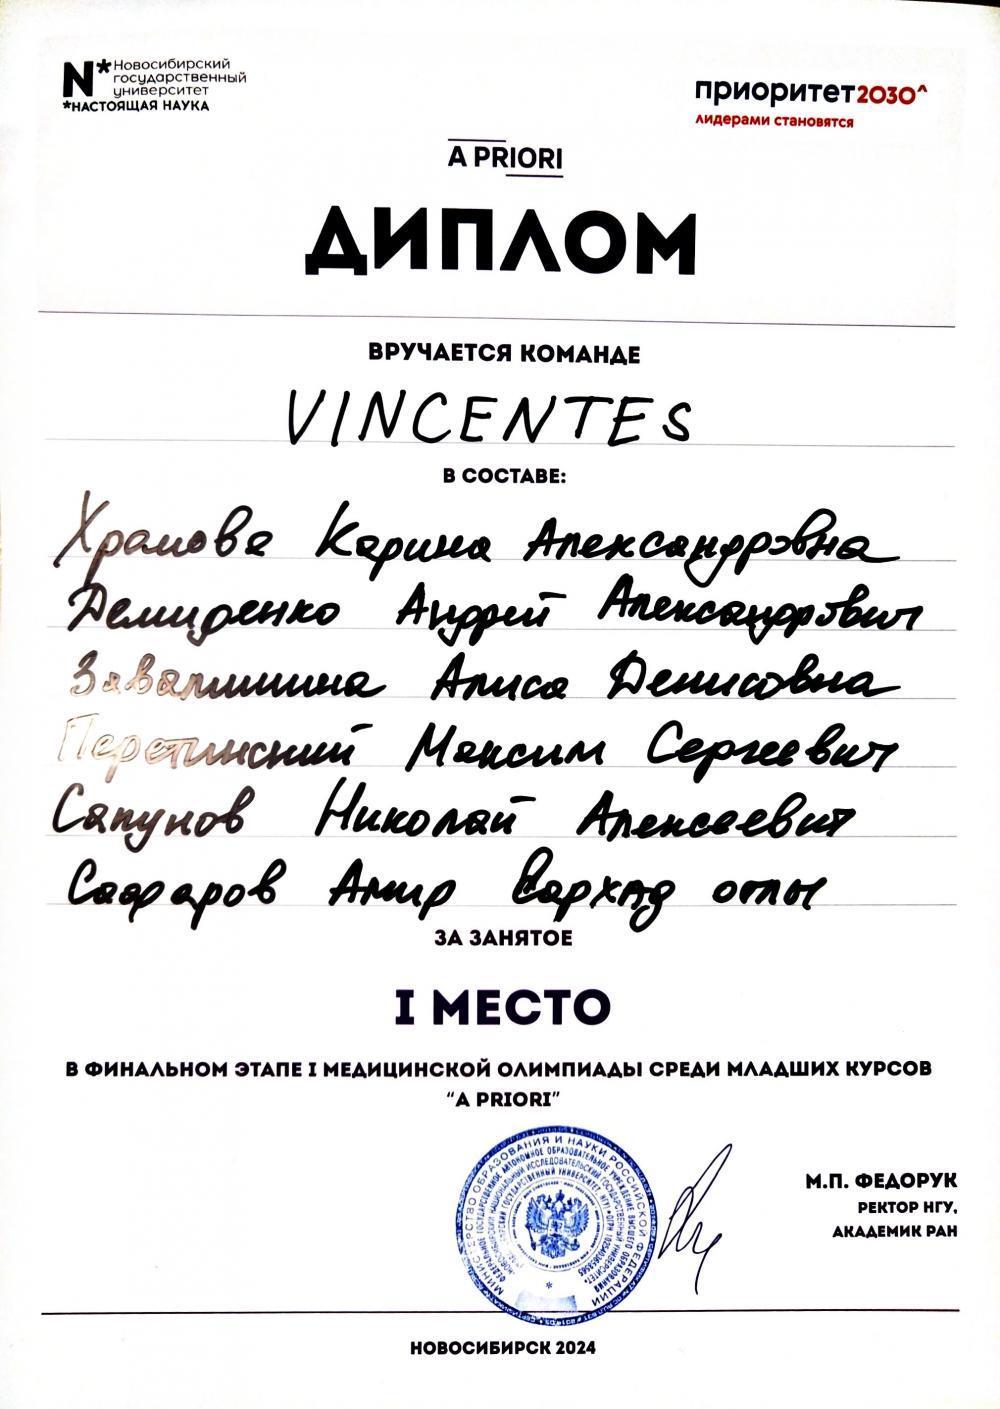 N* Новосибирский
государственный
университет
*НАСТОЯЩАЯ НАУКА
приоритет2030^
лидерами становятся
A PRIORI
ДИПЛОМ
ВРУЧАЕТСЯ КОМАНДЕ
VINCENTES
В СОСТАВЕ:
Храмова Карина Александровна
Демиденко Андрей Александрович
Завалишина Алиса Денисовна
Перетинский Максим Сергеевич
Сапунов Николай Алексеевич
Сафаров Амир Сархад оглы
ЗА ЗАНЯТОЕ
I МЕСТО
В ФИНАЛЬНОМ ЭТАПЕ I МЕДИЦИНСКОЙ ОЛИМПИАДЫ СРЕДИ МЛАДШИХ КУРСОВ
"A PRIORI"
МИНИСТЕРСТВО ОБРАЗОВАНИЯ И НАУКИ РОССИЙСКОЙ ФЕДЕРАЦИИ
М.П. ФЕДОРУК
РЕКТОР НГУ,
АКАДЕМИК РАН
НОВОСИБИРСК 2024